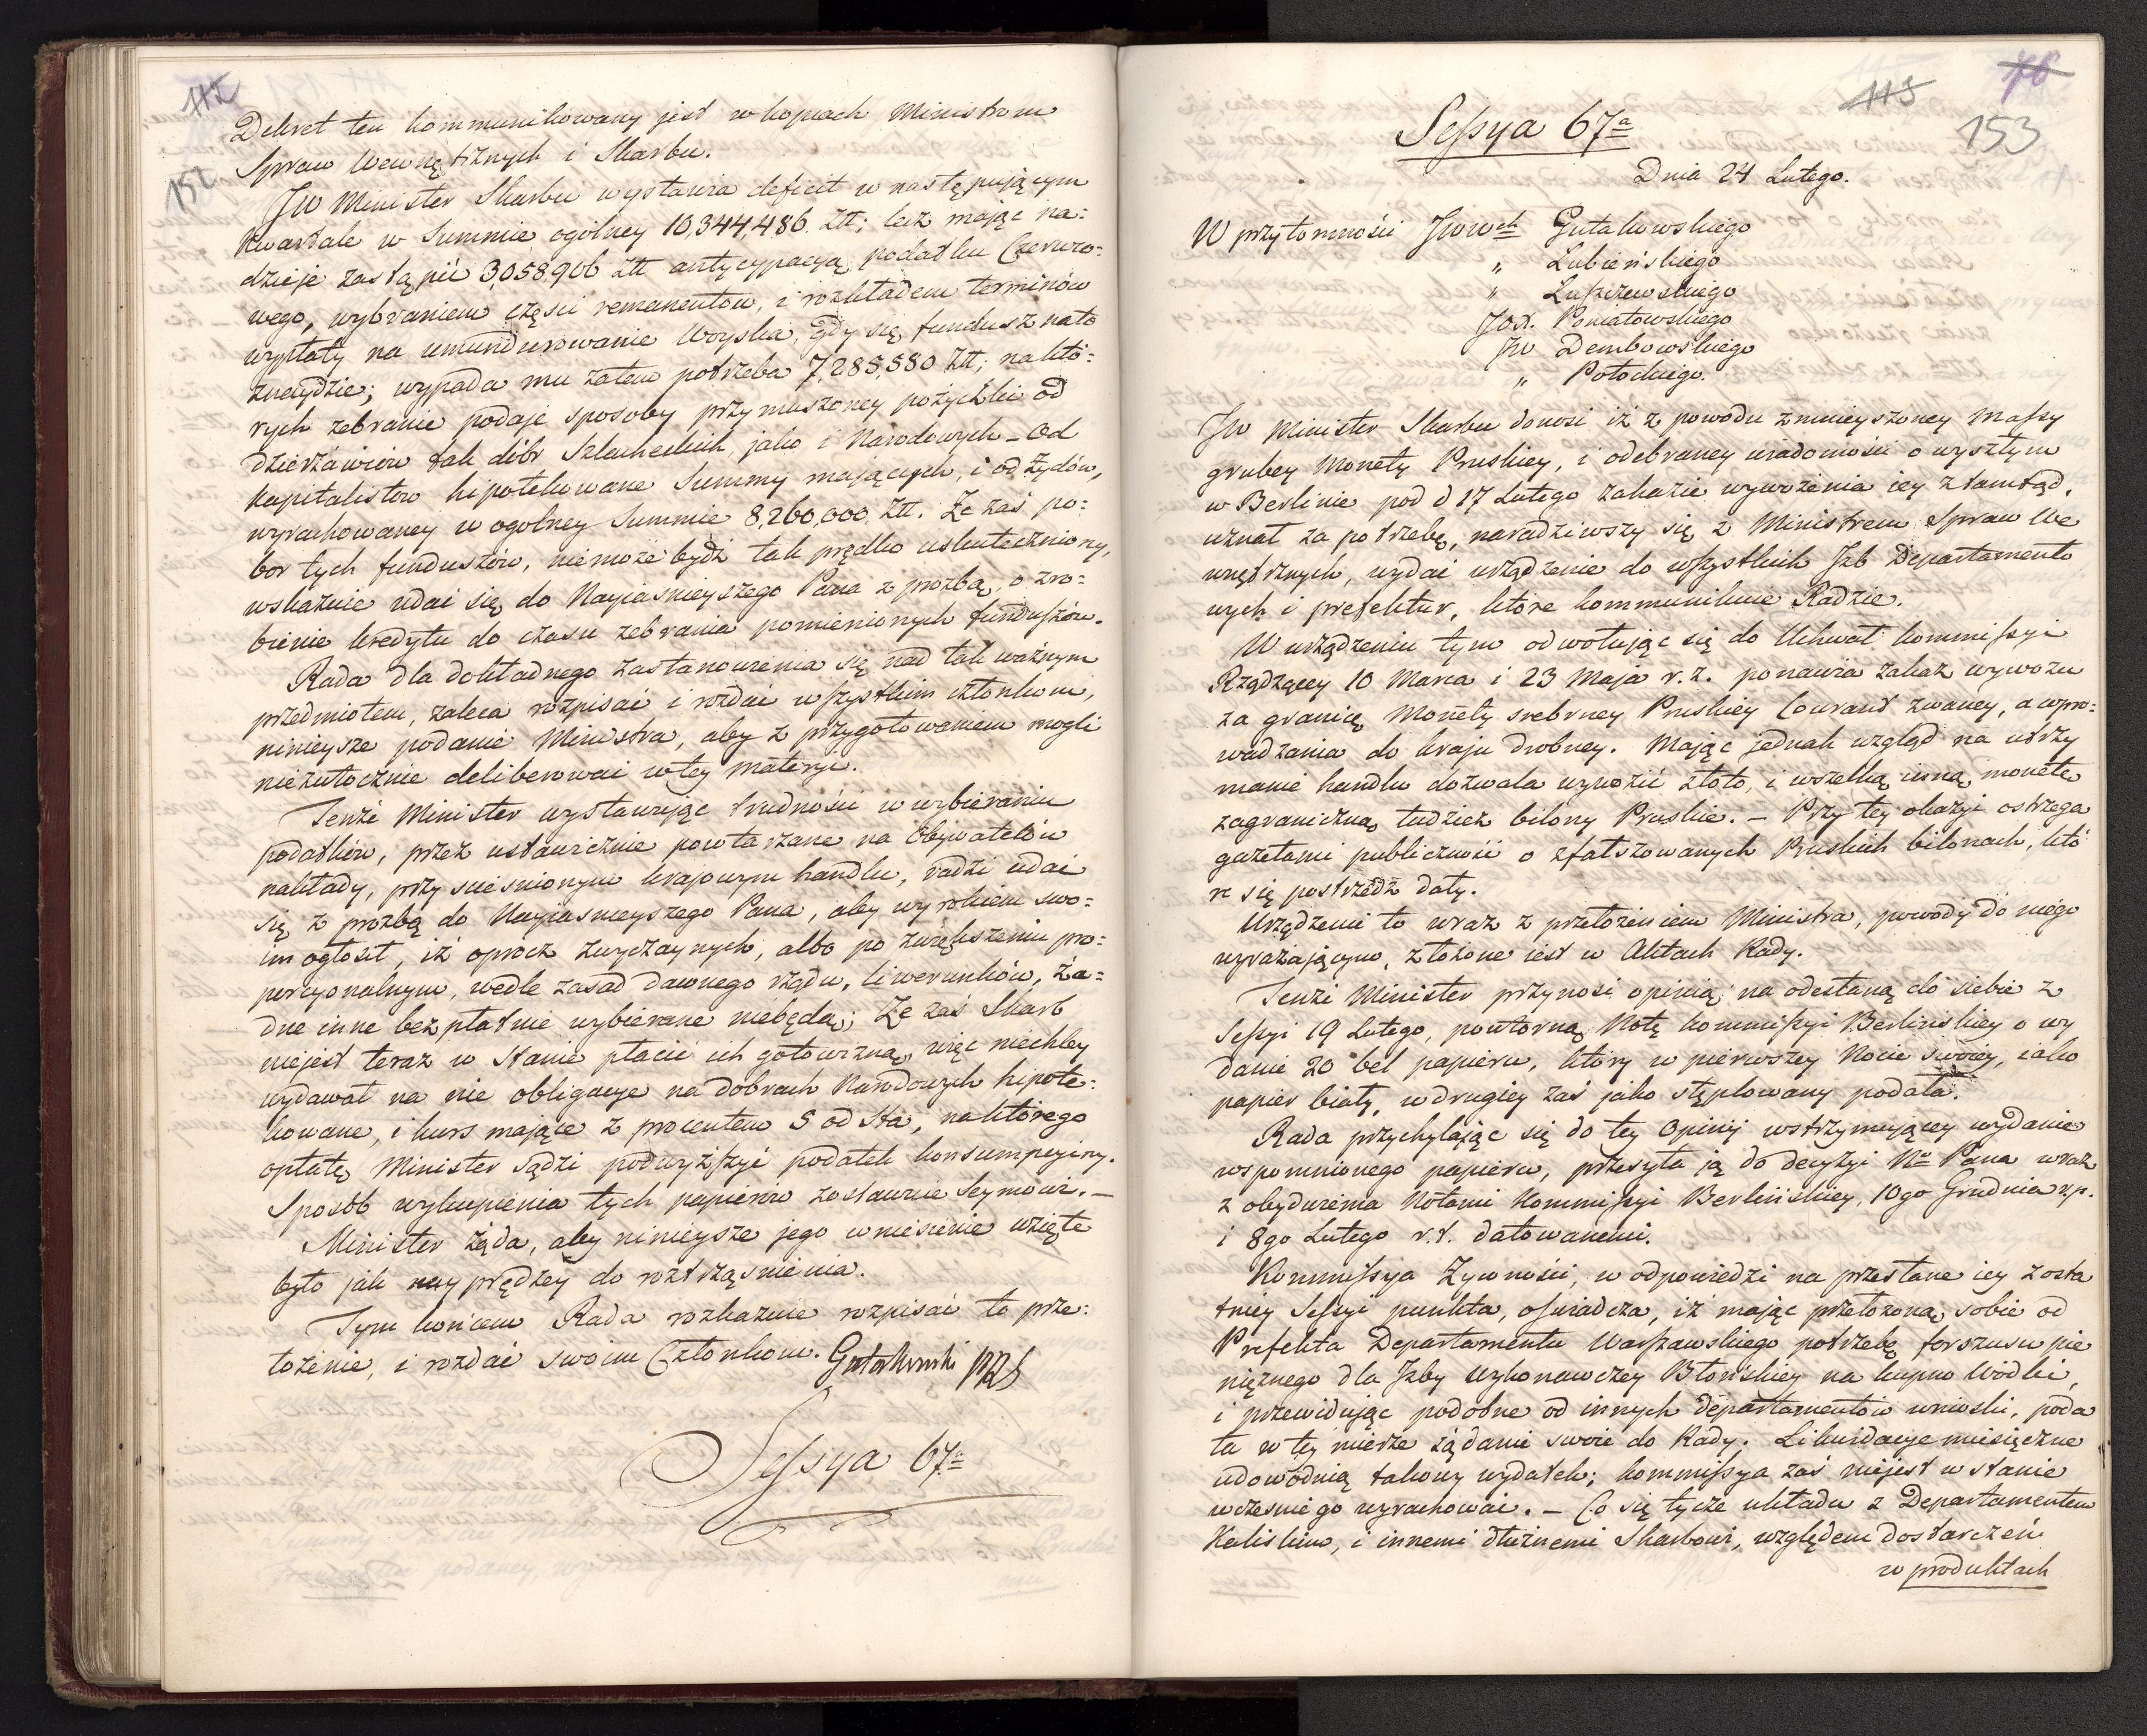 112
152
Dekret ten kommunikowany jest w kopiach Ministrom
Spraw Wewnętrznych i Skarbu.
JW Minister Skarbu wystawia deficit w następującym
kwartale w Summie ogólney 10,344,486. Złł; lecz mając na=
dzieje zastąpić 3,058,906 Złł antycypacyą podatku Czerwco=
wego, wybraniem części remanentow, i rozkładem terminów
wypłaty na umundurowanie Woyska, gdy się fundusz nato
znaydzie; wypada mu zatem potrzeba 7,285,580 Złł; na któ=
rych zebranie podaje sposoby przymuszoney pożyczki od
dzierżawców tak dóbr Szlacheckich, jako i Narodowych – Od
kapitalistow hipotekowane Summy mających, i od Żydów,
wyrachowaney w ogolney Summie 8,260,000 Złł. Że zaś po=
bor tych funduszów, niemoże bydź tak prędko uskuteczniony,
wskazuie udać się do Nayiaśnieyszego Pana z prozbą o zro=
bienie kredytu do czasu zebrania pomienionych funduszów.
Rada dla dokładnego zastanowienia się nad tak ważnym
przedmiotem, zaleca rozpisać i rozdać wszystkim członkom,
ninieysze podanie Ministra, aby z przygotowaniem mogli
niezwłocznie deliberować w tey materyi.
Tenże Minister wystawując trudności w wybieraniu
podatków, przez ustawicznie powtarzane na Obywatelów
nakłady, przy scieśnionym krajowym handlu, radzi udać
się z prozbą do Nayiasnieyszego Pana, aby wyrokiem swo=
im ogłosił, iż oprocz zwyczaynych, albo po zwiększeniu pro=
porcyonalnym, wedle zasad dawnego rządu, liwerunków, ża=
dne inne bezpłatnie wybierane niebędą; Że zaś Skarb
niejest teraz w stanie płacić ich gotowizną, więc niechby
wydawał na nie obligacye na dobrach Narodowych hipote=
kowane, i kurs mające z procentem 5 od Sta, na którego
opłatę Minister sądzi podwyższyć podatek konsumpcyiny.
Sposób wykupienia tych papierów zostawuie Seymowi. –
Minister żąda, aby ninieysze jego wniesienie wzięte
było jak nayprędzey do roztrząśnienia.
Tym końcem Rada rozkazuie rozpisać to prze=
łożenie, i rozdać swoim Członkom. Gutakowski PRS
Sessya 67a
113
76
153
Sessya 67a
Dnia 24 Lutego.
W przytomności JWWch Gutakowskiego
" Łubieńskiego
" Łuszczewskiego
JOX. Poniatowskiego
JW Dembowskiego
" Potockiego.
JW Minister Skarbu donosi iż z powodu zmnieyszoney massy
grubey Monety Pruskiey, i odebraney wiadomości o wyszłym
w Berlinie pod d 17 Lutego zakazie wywożenia iey ztamtąd,
uznał za potrzebę, naradziwszy się z Ministrem Spraw We
wnętrznych, wydać urządzenie do wszystkich Izb Departamento
wych i prefektur, które kommunikuie Radzie.
W urządzeniu tym odwołując się do Uchwał kommissyi
Rządzącey 10 Marca i 23 Maja r. z. ponawia zakaz wywozu
za granicę Monety srebrney Pruskiey Courant zwaney, a wpro=
wadzania do kraju drobney. Mając jednak wzgląd na utrzy
manie handlu dozwala wywozić złoto, i wszelką inną monetę
zagraniczną tudzież bilony Pruskie. – Przy tey okazyi ostrzega
gazetami publiczność o zfałszowanych Pruskich bilonach, któ
re się postrzedz dały.
Urządzenie to wraz z przełożeniem Ministra, powody do niego
wyrażającym, złożone iest w Aktach Rady.
Tenże Minister przynosi opinią na odesłaną do siebie z
Sessyi 19 Lutego, powtorną Notę kommissyi Berlińskiey o wy
danie 20 bel papieru, który w pierwszey Nocie swoiey, iako
papier biały, w drugiey zaś jako stęplowany podała.
Rada przychylając się do tey Opinij wstrzymuiącey wydanie
wspomnionego papieru, przesyła ją do decyzyi Ngo Pana wraz
z obydwiema Notami Kommissyi Berlińskiey, 10go Grudnia r.p.
i 8go Lutego r.t. datowanemi.
Kommissya Żywności, w odpowiedzi na przesłane iey z osta
tniey Sessyi punkta, oświadcza, iż mając przełożoną sobie od
Prefekta Departamentu Warszawskiego potrzebę forszusu pie
niężnego dla Izby Wykonawczey Błońskiey na kupno Wódki,
i przewidując podobne od innych departamentów wnioski, poda
ła w tey mierze żądanie swoie do Rady. Likwidacye miesięczne
udowodnią takowy wydatek; kommissya zaś niejest w stanie
wcześnie go wyrachować. – Co się tycze układu z Departamentem
Kaliskim, i innemi dłużnemi Skarbowi, względem dostarczeń
w produktach